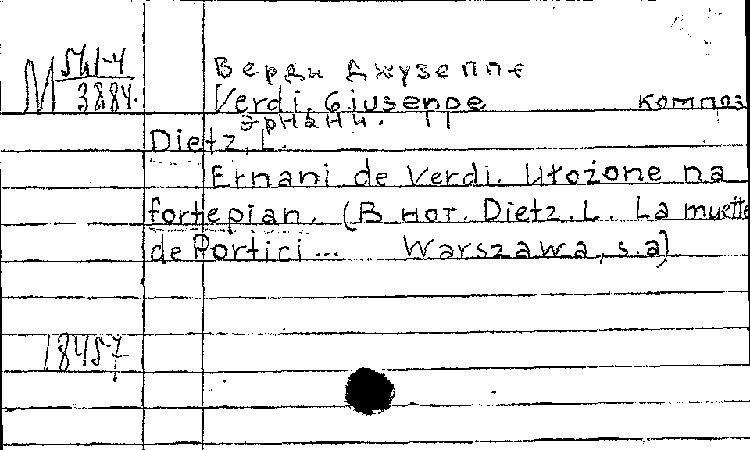 М 541-4
3884.
Верди Джузеппе
Verdi, Giuseppe композ
Эрнани.
Dietz, L.
Ernani de Verdi. Ułożone na
fortepian. (В нот. Dietz. L. La muette
de Portici... Warszawa, s.a)
18457